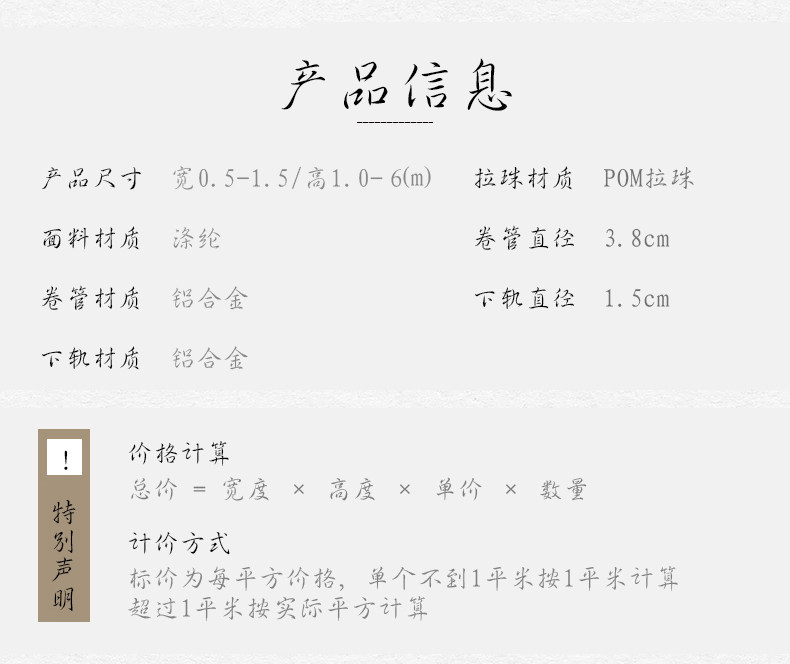 产品信息
产品尺寸 宽0.5-1.5/高1.0-6(m) 拉珠材质 POM拉珠
面料材质 涤纶 卷管直径 3.8cm
卷管材质 铝合金 下轨直径 1.5cm
下轨材质 铝合金
! 特别声明
价格计算
总价 = 宽度 × 高度 × 单价 × 数量
计价方式
标价为每平方价格, 单个不到1平米按1平米计算
超过1平米按实际平方计算